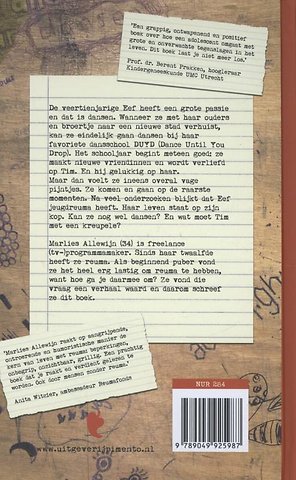 "Een grappig, ontwapenend en positief
boek over hoe een adolescent omgaat met
grote en onverwachte tegenslagen in het
leven. Dit boek laat je niet meer los."
Prof. dr. Berent Prakken, hoogleraar
Kindergeneeskunde UMC Utrecht
De veertienjarige Eef heeft een grote passie
en dat is dansen. Wanneer ze met haar ouders
en broertje naar een nieuwe stad verhuist,
kan ze eindelijk gaan dansen bij haar
favoriete dansschool DUYD (Dance Until You
Drop). Het schooljaar begint meteen goed: ze
maakt nieuwe vriendinnen en wordt verliefd
op Tim. En hij gelukkig op haar.
Maar dan voelt ze ineens overal vage
pijntjes. Ze komen en gaan op de raarste
momenten. Na veel onderzoeken blijkt dat Eef
jeugdreuma heeft. Haar leven staat op zijn
kop. Kan ze nog wel dansen? En wat moet Tim
met een kreupele?
Marlies Allewijn (34) is freelance
(tv-)programmamaker. Sinds haar twaalfde
heeft ze reuma. Als beginnend puber vond
ze het heel erg lastig om reuma te hebben,
want hoe ga je daarmee om? Ze vond die
vraag een verhaal waard en daarom schreef
ze dit boek.
'Marlies Allewijn raakt op aangrijpende,
ontroerende en humoristische manier de
kern van leven met reuma: beperkingen,
onbegrip, onzichtbaar, grillig. Een prachtig
boek dat je raakt en verdient gelezen te
worden. Ook door mensen zonder reuma.'
Anita Witzier, ambassadeur Reumafonds
www.uitgeverijpimento.nl
NUR 284
9 789049 925987